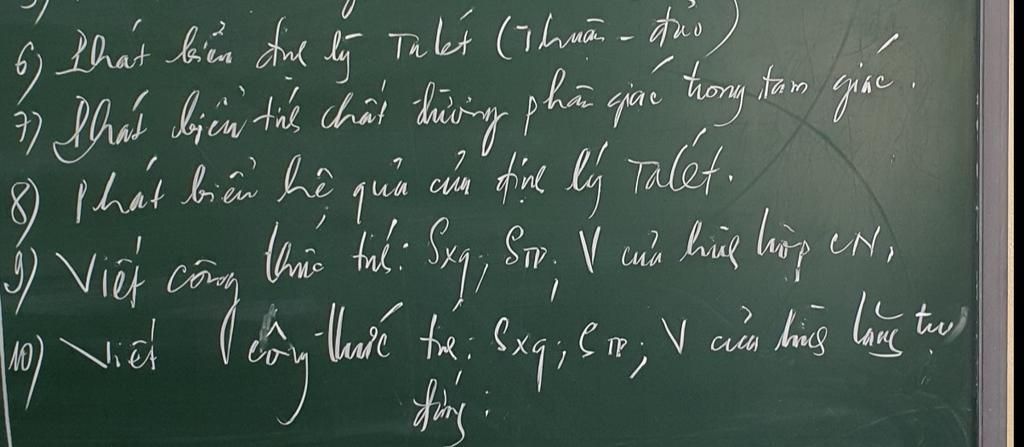 6) Phát biểu định lý Talét (Thuận - đảo)
7) Phát biểu tính chất đường phân giác trong tam giác.
8) Phát biểu hệ quả của định lý Talét.
9) Viết công thức tính: Sxq; STP; V của hình hộp CN,
10) Viết công thức tính: Sxq; STP; V của hình lăng trụ
đứng: